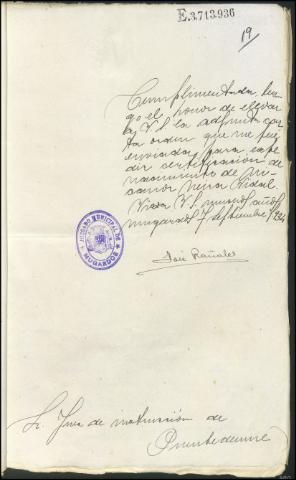 E.3.713.936
19
Cumplimentada ten-
go el honor de elevar
a V.S. la adjunta car-
ta orden que me fue
enviada para expe-
dir certificación de
nacimiento de Ni-
canor Vidal.
Viva V.S. muchos años
Mugardos 7 Septiembre 1934
JUZGADO MUNICIPAL DE
MUGARDOS
José
Sr. Juez de instrucción de
Puentedeume